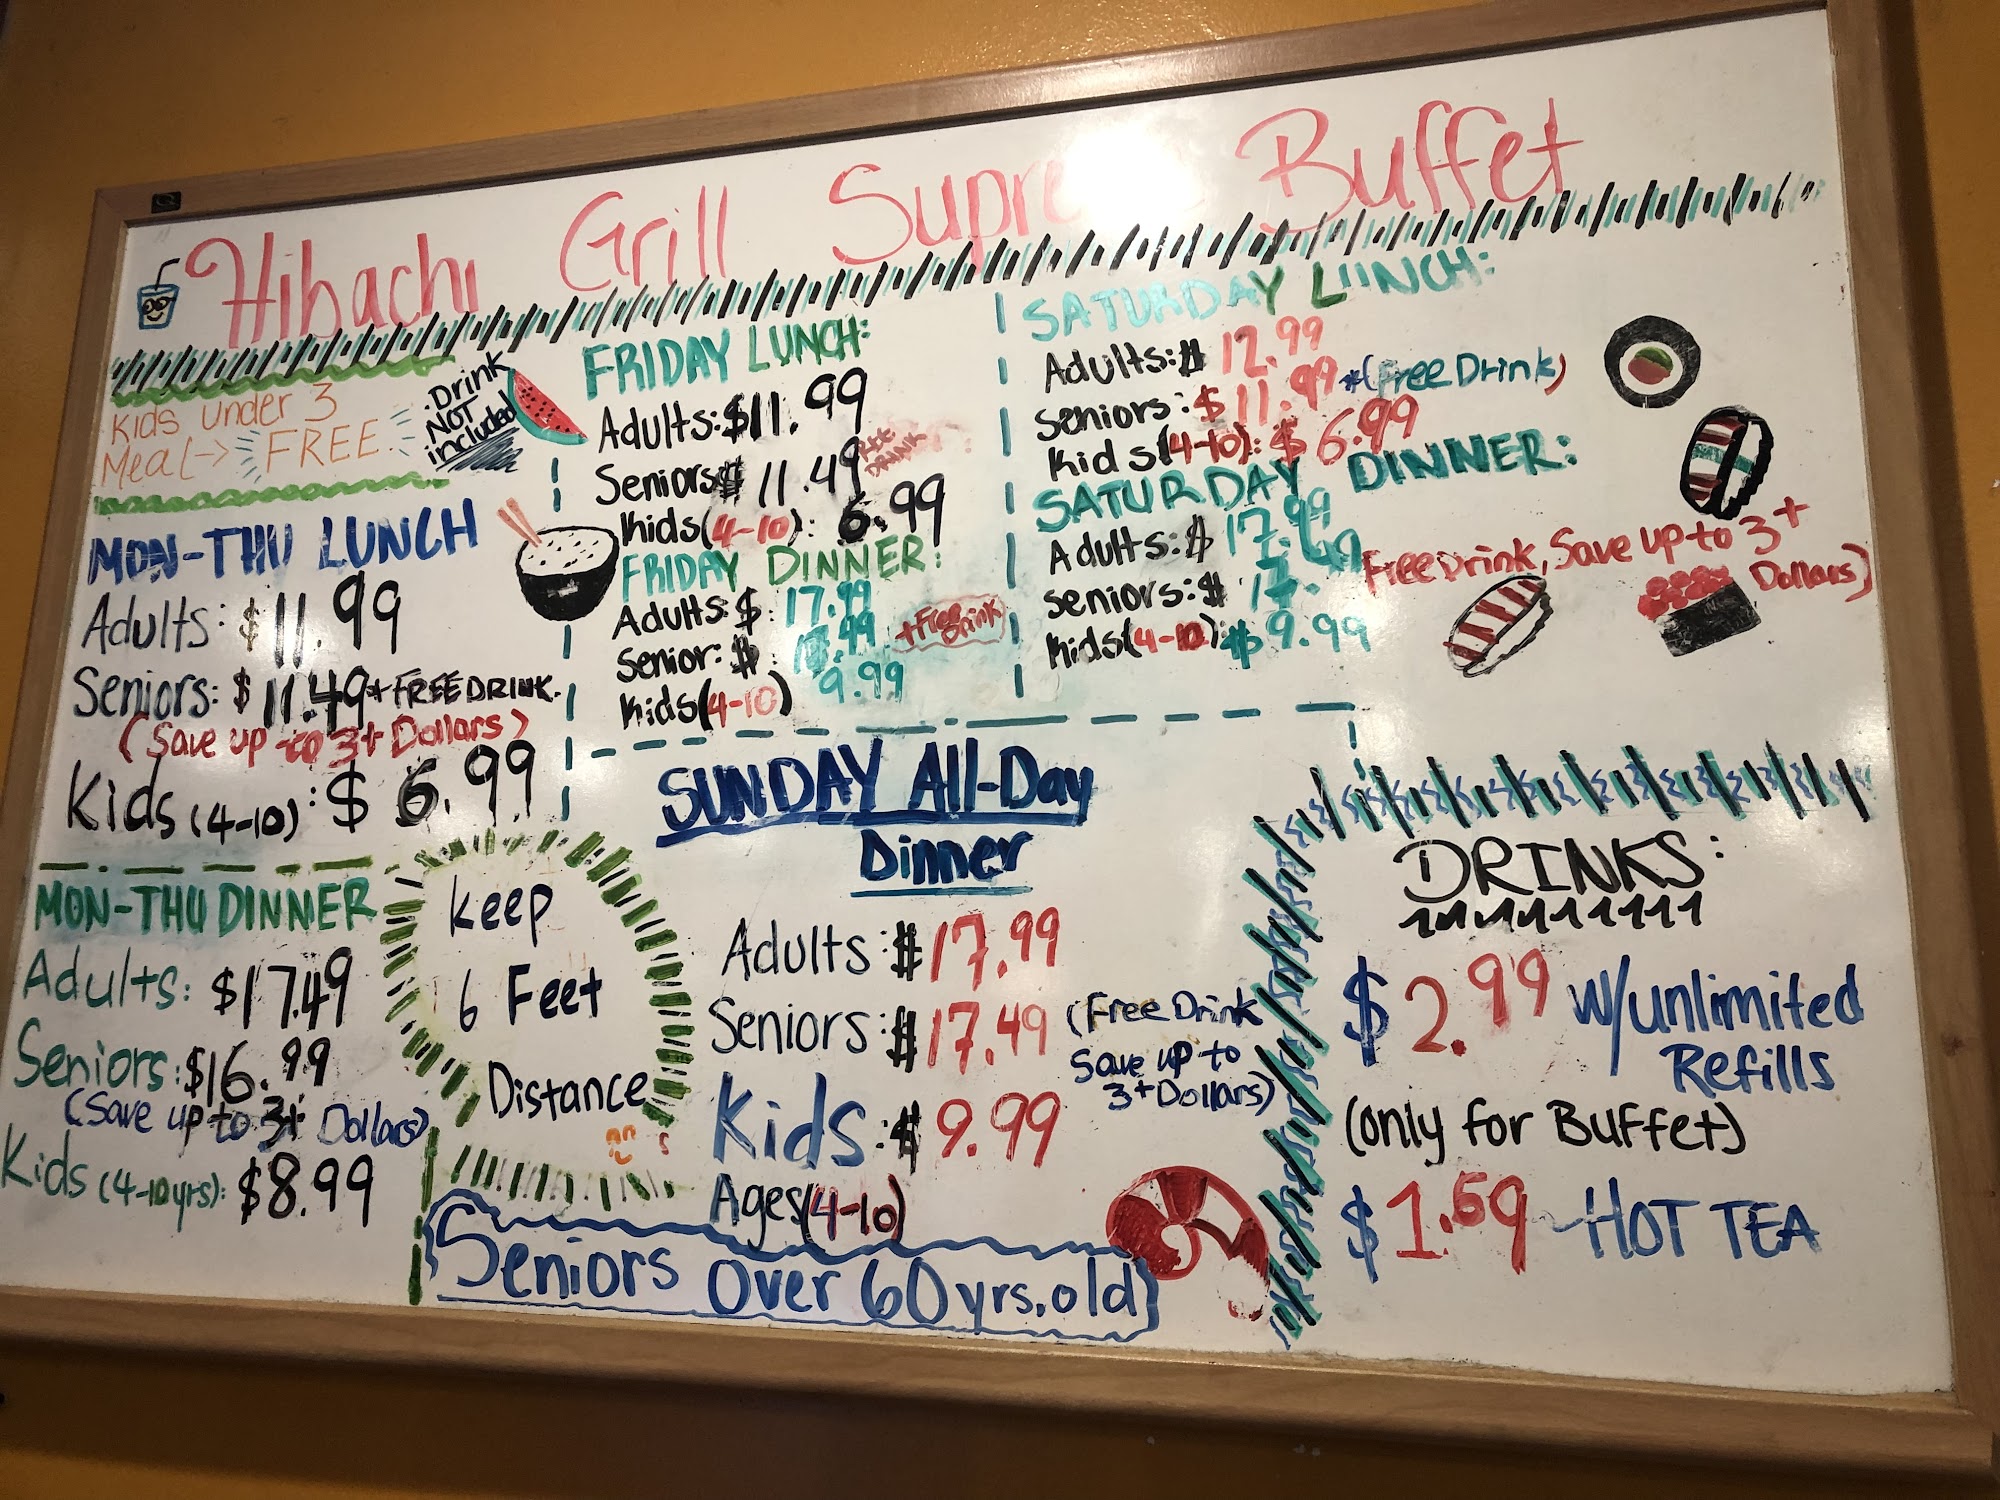 Hibachi Grill Supreme Buffet
Kids under 3
Meal -> FREE
Drink
NOT
included
MON-THU LUNCH
Adults: $11.99
Seniors: $11.49 + FREE DRINK.
(Save up to 3+ Dollars)
Kids (4-10): $6.99
MON-THU DINNER
Adults: $17.49
Seniors: $16.99
(Save up to 3+ Dollars)
Kids (4-10yrs): $8.99
Keep
6 Feet
Distance
FRIDAY LUNCH:
Adults: $11.99
Seniors $11.49 FREE DRINK
Kids (4-10): 6.99
FRIDAY DINNER:
Adults: $ 17.99
Senior: $ +Free drink
Kids (4-10) 9.99
SATURDAY LUNCH:
Adults: $12.99
Seniors: $11.99 *(Free Drink)
Kids (4-10): $6.99
SATURDAY DINNER:
Adults: $17.99
Seniors: $17.49
Kids (4-10): $9.99
Free Drink, Save up to 3+
Dollars)
SUNDAY All-Day
Dinner
Adults: $17.99
Seniors: $17.49
(Free Drink
Save up to
3+ Dollars)
Kids: $9.99
Ages (4-10)
Seniors Over 60 yrs. old
DRINKS:
$2.99 w/unlimited
Refills
(only for Buffet)
$1.59 ~ HOT TEA